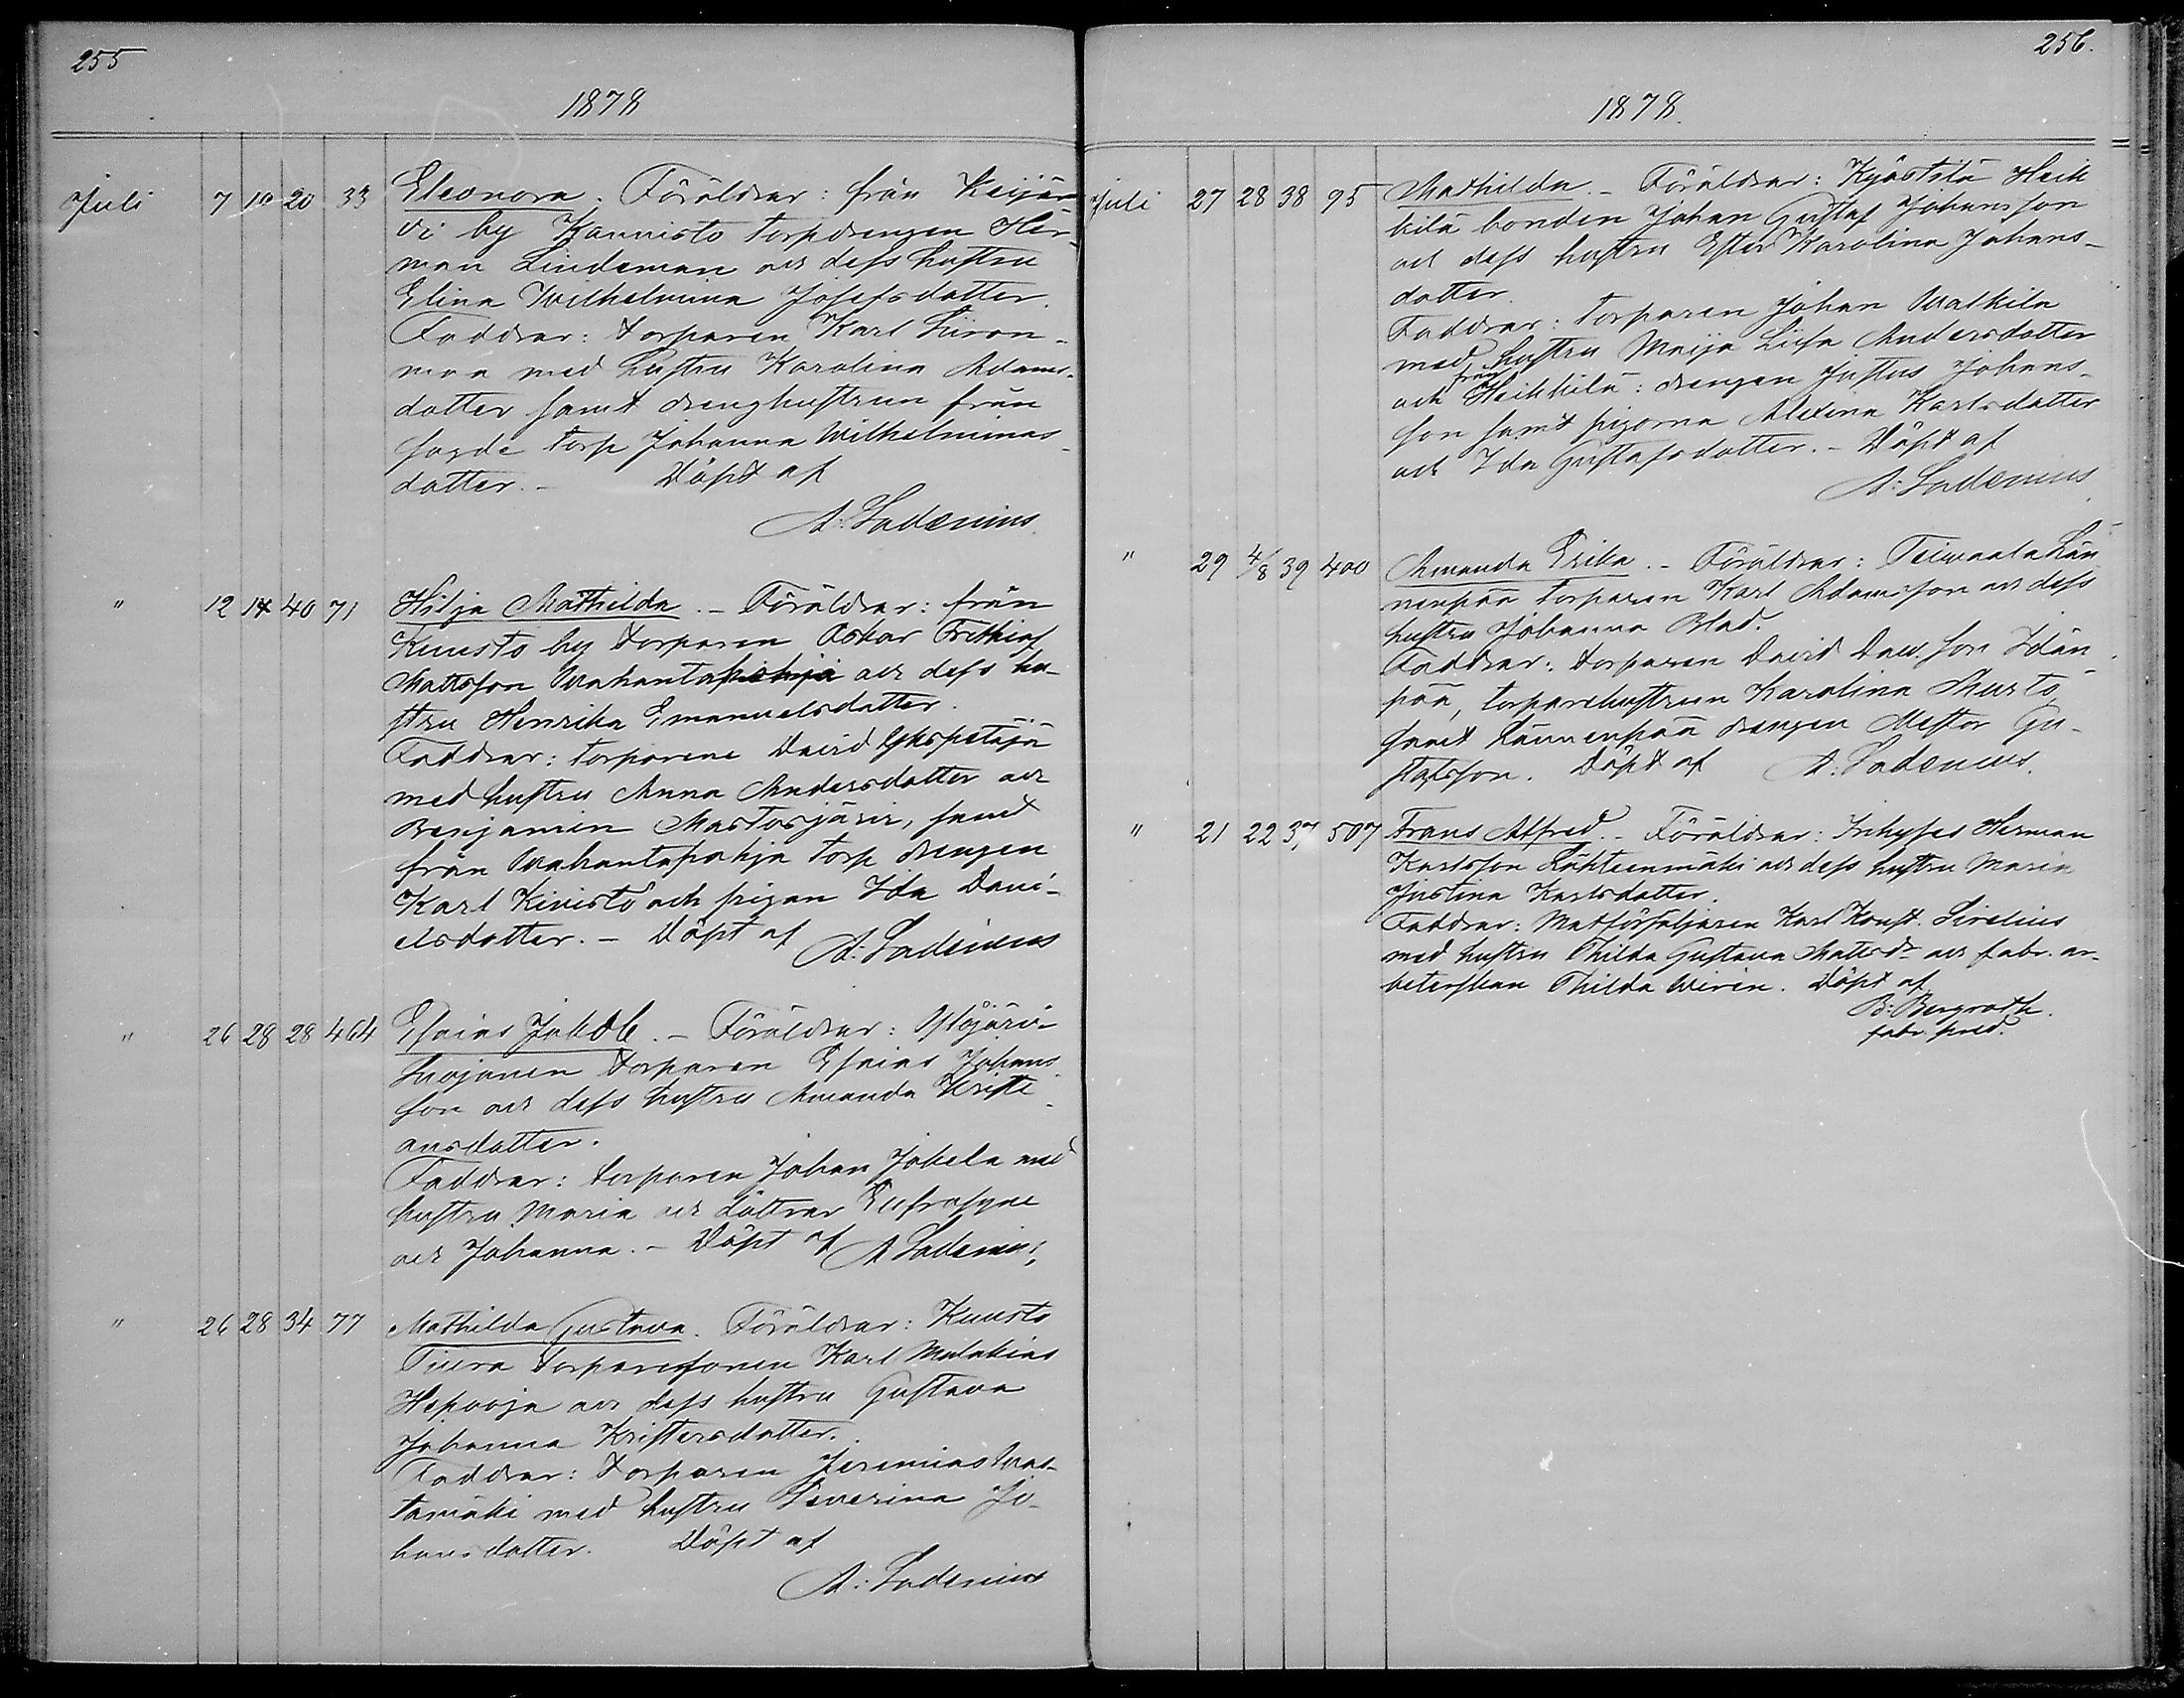 255
1878
Juli 7 10 20 33 Eleonora. Föräldrar: från Keijär
vi by Kannisto torpdrengen Her-
man Lindeman och dess hustru
Elina Wilhelmina Josefsdotter.
Faddrar: torparen Karl Siiron-
maa med hustru Karolina Adams-
dotter samt drenghustrun från
sagde torp Johanna Wilhelminas-
dotter. - Döpt af
A: Ladenius.
" 12 14 40 71 Hilja Mathilda. - Föräldrar: från
Kuusto by torparen Oskar Frithiof
Mattsson Wahantapohja och dess hu-
stru Henrika Emanuelsdotter.
Faddrar: torparene David Yhspetäjä
med hustru Anna Andersdotter och
Benjamin Mastosjärvi, samt
från Wahantapohja torp drengen
Karl Kivistö och pigan Ida Davi-
elsdotter. - Döpt af A. Ladenius
" 26 28 28 464 Esaias Jakob. - Föräldrar: Östöjärvi
Suojanen torparen Esaias Johans-
son och dess hustru Amanda Kristi-
ansdotter.
Faddrar: torparen Johan Jokela med
hustru Maria och döttrar Eufrosyne
och Johanna. - Döpt af A Ladenius,
" 26 28 34 77 Mathilda Gustava. Föräldrar: Kuusto
Tiura torparesonen Karl Malakias
Hepooja och dess hustru Gustava
Johanna Kristersdotter.
Faddrar: torparen Jeremias Was-
tamäki med hustru Severina Jo-
hansdotter. Döpt af
A: Ladenius
256.
1878.
Juli 27 28 38 95 Mathilda. - Föräldrar: Kyöstilä Heik
kilä bonden Johan Gustaf Johansson
och dess hustru Ester Karolina Johans-
dotter.
Faddrar: torparen Johan Walkila
med hustru Maija Liisa Andersdotter
och från Heikkilä: drengen Justus Johans-
son samt pigorna Alexina Karlsdotter
och Ida Gustafsdotter. - Döpt af
A: Ladenius
" 29 4/8 39 400 Amanda Erika. - Föräldrar: Teiwaala Län
nenpää torparen Karl Adamsson och dess
hustru Johanna Blad.
Faddrar: torparen David Dav.son Idän-
pää, torparehustrun Karolina Mursto
samt Lännenpää drengen Nestor Gu-
stafsson. Döpt af A: Ladenius.
" 21 22 37, 507 Frans Alfred. - Föräldrar: Inhyses Herman
Karlsson Lähteenmäki och dess hustru Maria
Justina Karlsdotter.
Faddrar: Matförsäljaren Karl Konst. Sirelius
med hustru Thilda Gustava Mattsdr och fabr. ar-
beterskan Thilda Wiren. Döpt af
B: Bergroth.
fabr. pred.